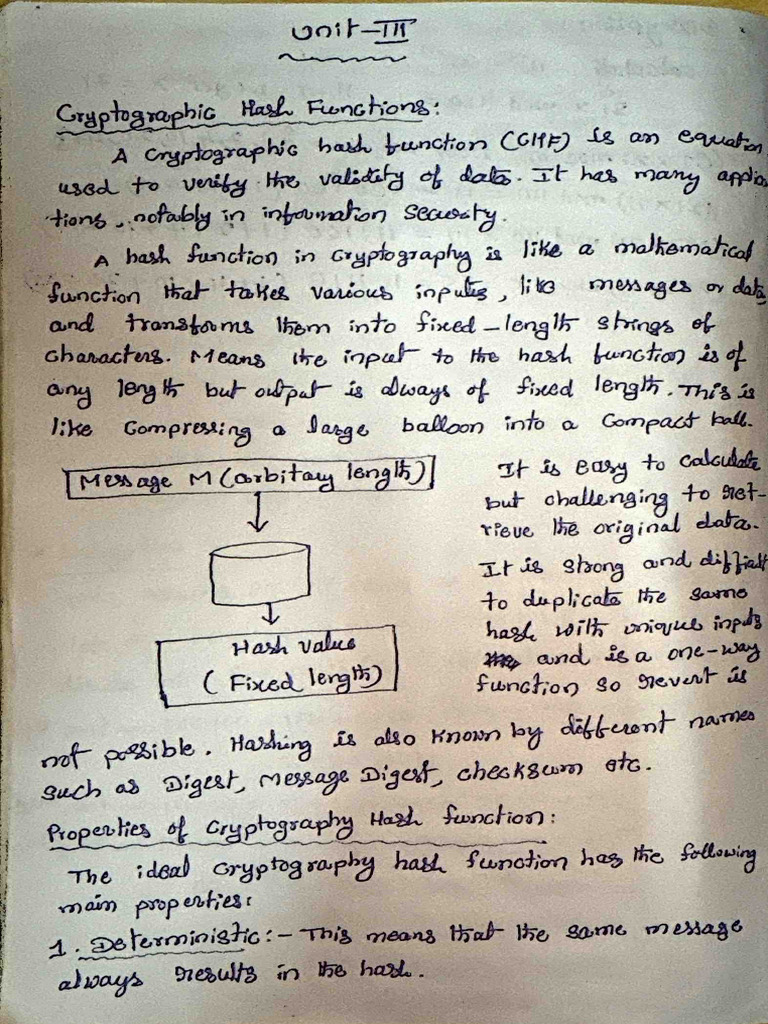 Unit-III
Cryptographic Hash Functions:
A cryptographic hash function (CHF) is an equation
used to verify the validity of data. It has many applica
tions, notably in information security.
A hash function in cryptography is like a mathematical
function that takes various inputs, like messages or data,
and transforms them into fixed-length strings of
characters. Means the input to the hash function is of
any length but output is always of fixed length. This is
like compressing a large balloon into a compact ball.
Message M (arbitary length)
Hash value
(Fixed length)
It is easy to calculate
but challenging to ret-
rieve the original data.
It is strong and difficult
to duplicate the same
hash with unique inputs
and is a one-way
function so revert is
not possible. Hashing is also known by different names
such as Digest, Message Digest, checksum etc.
Properties of Cryptography Hash function:
The ideal cryptography hash function has the following
main properties:
1. Deterministic:- This means that the same message
always results in the hash.